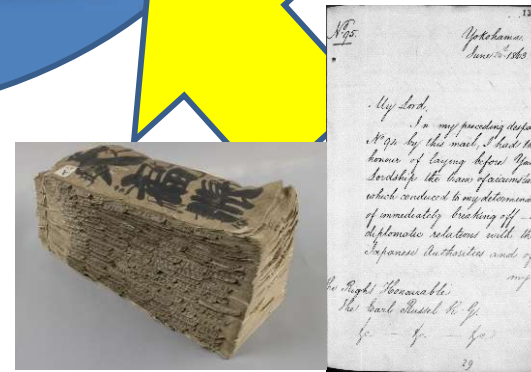 大
富
帳
13
Nº 95.
Yokohama.
June 24 1863
My Lord,
In my preceding despa
Nº 94 by this mail, I had th
honour of laying before You
Lordship the train of circumstan
which conduced to my determina
of immediately breaking off —
diplomatic relations with th
Japanese Authorities and of
my
he Right Honourable
The Earl Russell K. G.
&c — &c — &c
29